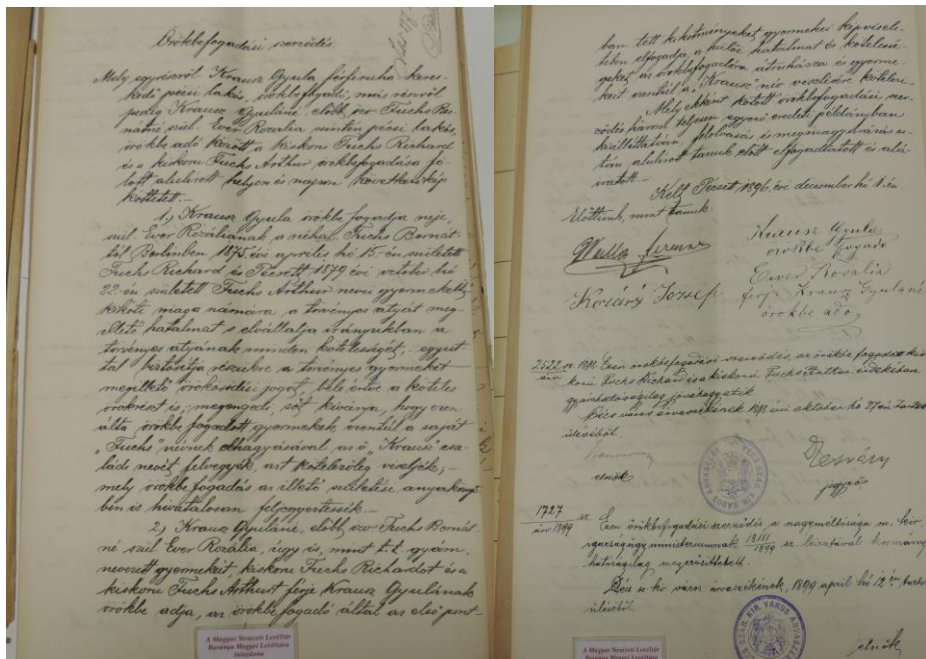 Örökbefogadási szerződés
Mely egyrészről Krausz Gyula férfiruha keres-
kedő pécsi lakós, örökbefogadó, más részről
pedig Krausz Gyuláné, előbb özv Fuchs Ber-
nátné szül. Ever Rozália szintén pécsi lakós,
örökbe adó között a kiskorú Fuchs Richard
és a kiskorú Fuchs Arthur örökbefogadása fö-
lött alulirott helyen és napon következőkép
köttetett.—
1.) Krausz Gyula örökbe fogadja neje,
szül. Ever Rozáliának a néhai Fuchs Bernát-
tól Berlinben 1875. évi április hó 15-én született
Fuchs Richard és Pécsett, 1879 évi october hó
22-én született Fuchs Arthur nevű gyermekeit,
kiköti maga számára a törvényes atyját meg-
illető hatalmat s elvállalja irányukban a
törvényes atyának minden kötelességét, – egyut-
tal biztosítja részükre a törvényes gyermeket
megillető öröklési jogot, bele értve a köteles
részt is, megengedi, sőt kivánja, hogy ezen
általa örökbe fogadott gyermekek ezentúl a saját
"Fuchs" nevük elhagyásával az ő "Krausz" csa-
ládi nevét felvegyék, azt kötelezőleg viseljék, –
mely örökbe fogadás az illető születési anyaköny-
ben is hivatalosan feljegyeztessék.—
2.) Krausz Gyuláné, előbb özv Fuchs Bernát-
né szül Ever Rozália, úgy is, mint t. t. gyám,
nevezett gyermekeit, kiskorú Fuchs Richardot és a
kiskorú Fuchs Arthurt férje Krausz Gyulának
örökbe adja, az örökbefogadó által az első pont-
A Magyar Nemzeti Levéltár
Baranya Megyei Levéltára
tulajdona
ban tett kikötményeket gyermekei képvisele-
tében elfogadja, a szülői hatalmat és kötelessé-
geket az örökbefogadóra átruházza és gyerme-
keit ezentúl a "Krausz" név viselésére kötelezi.
Mely ekként kötött örökbefogadási szer-
ződés három teljesen egyező eredeti példányban
kiállíttatván, felolvasás és megmagyarázás u-
tán alulirott tanuk előtt elfogadtatott és alá-
iratott.—
Kelt Pécsett, 1896 évi december hó 1.én
Előttünk, mint tanuk:
Krausz Gyula
örökbe fogadó
Ferenc
Ever Rosalia
József
férje Krausz Gyuláné
örökbe adó
Ezen örökbefogadási szerződés, az örökbe fogadott kis-
korú Fuchs Richard és a kiskorú Fuchs Arthur érdekében
gyámhatóságilag jóváhagyatik
Pécs város árvaszékének évi október hó 27én tartott
üléséből.
elnök
jegyző
1727 sz
árv. 1899
Ezen örökbefogadási szerződés a nagyméltóságu m. kir.
igazságügy ministeriumnak 18111/1899 sz. leiratával kormány-
hatóságilag megerősíttetett.
Pécs sz. kir. város árvaszékének, 1899 április hó 12én tartott
üléséből.
elnök
A Magyar Nemzeti Levéltár
Baranya Megyei Levéltára
tulajdona